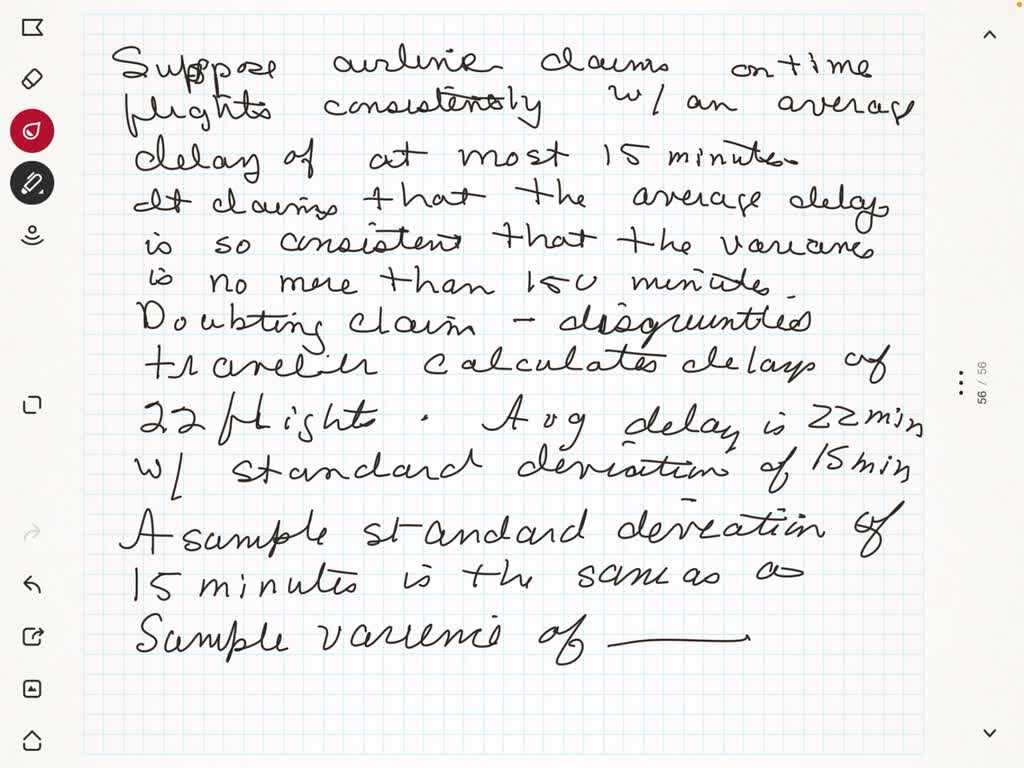 Suppose airline claims on time
flights consistently w/ an average
delay of at most 15 minutes.
It claims that the average delay
is so consistent that the variance
is no more than 150 minutes.
Doubting claim - disgruntled
traveler calculates delays of
22 flights. Avg delay is 22 min
w/ standard deviation of 15 min
A sample standard deviation of
15 minutes is the same as a
Sample variance of ____
56 / 56